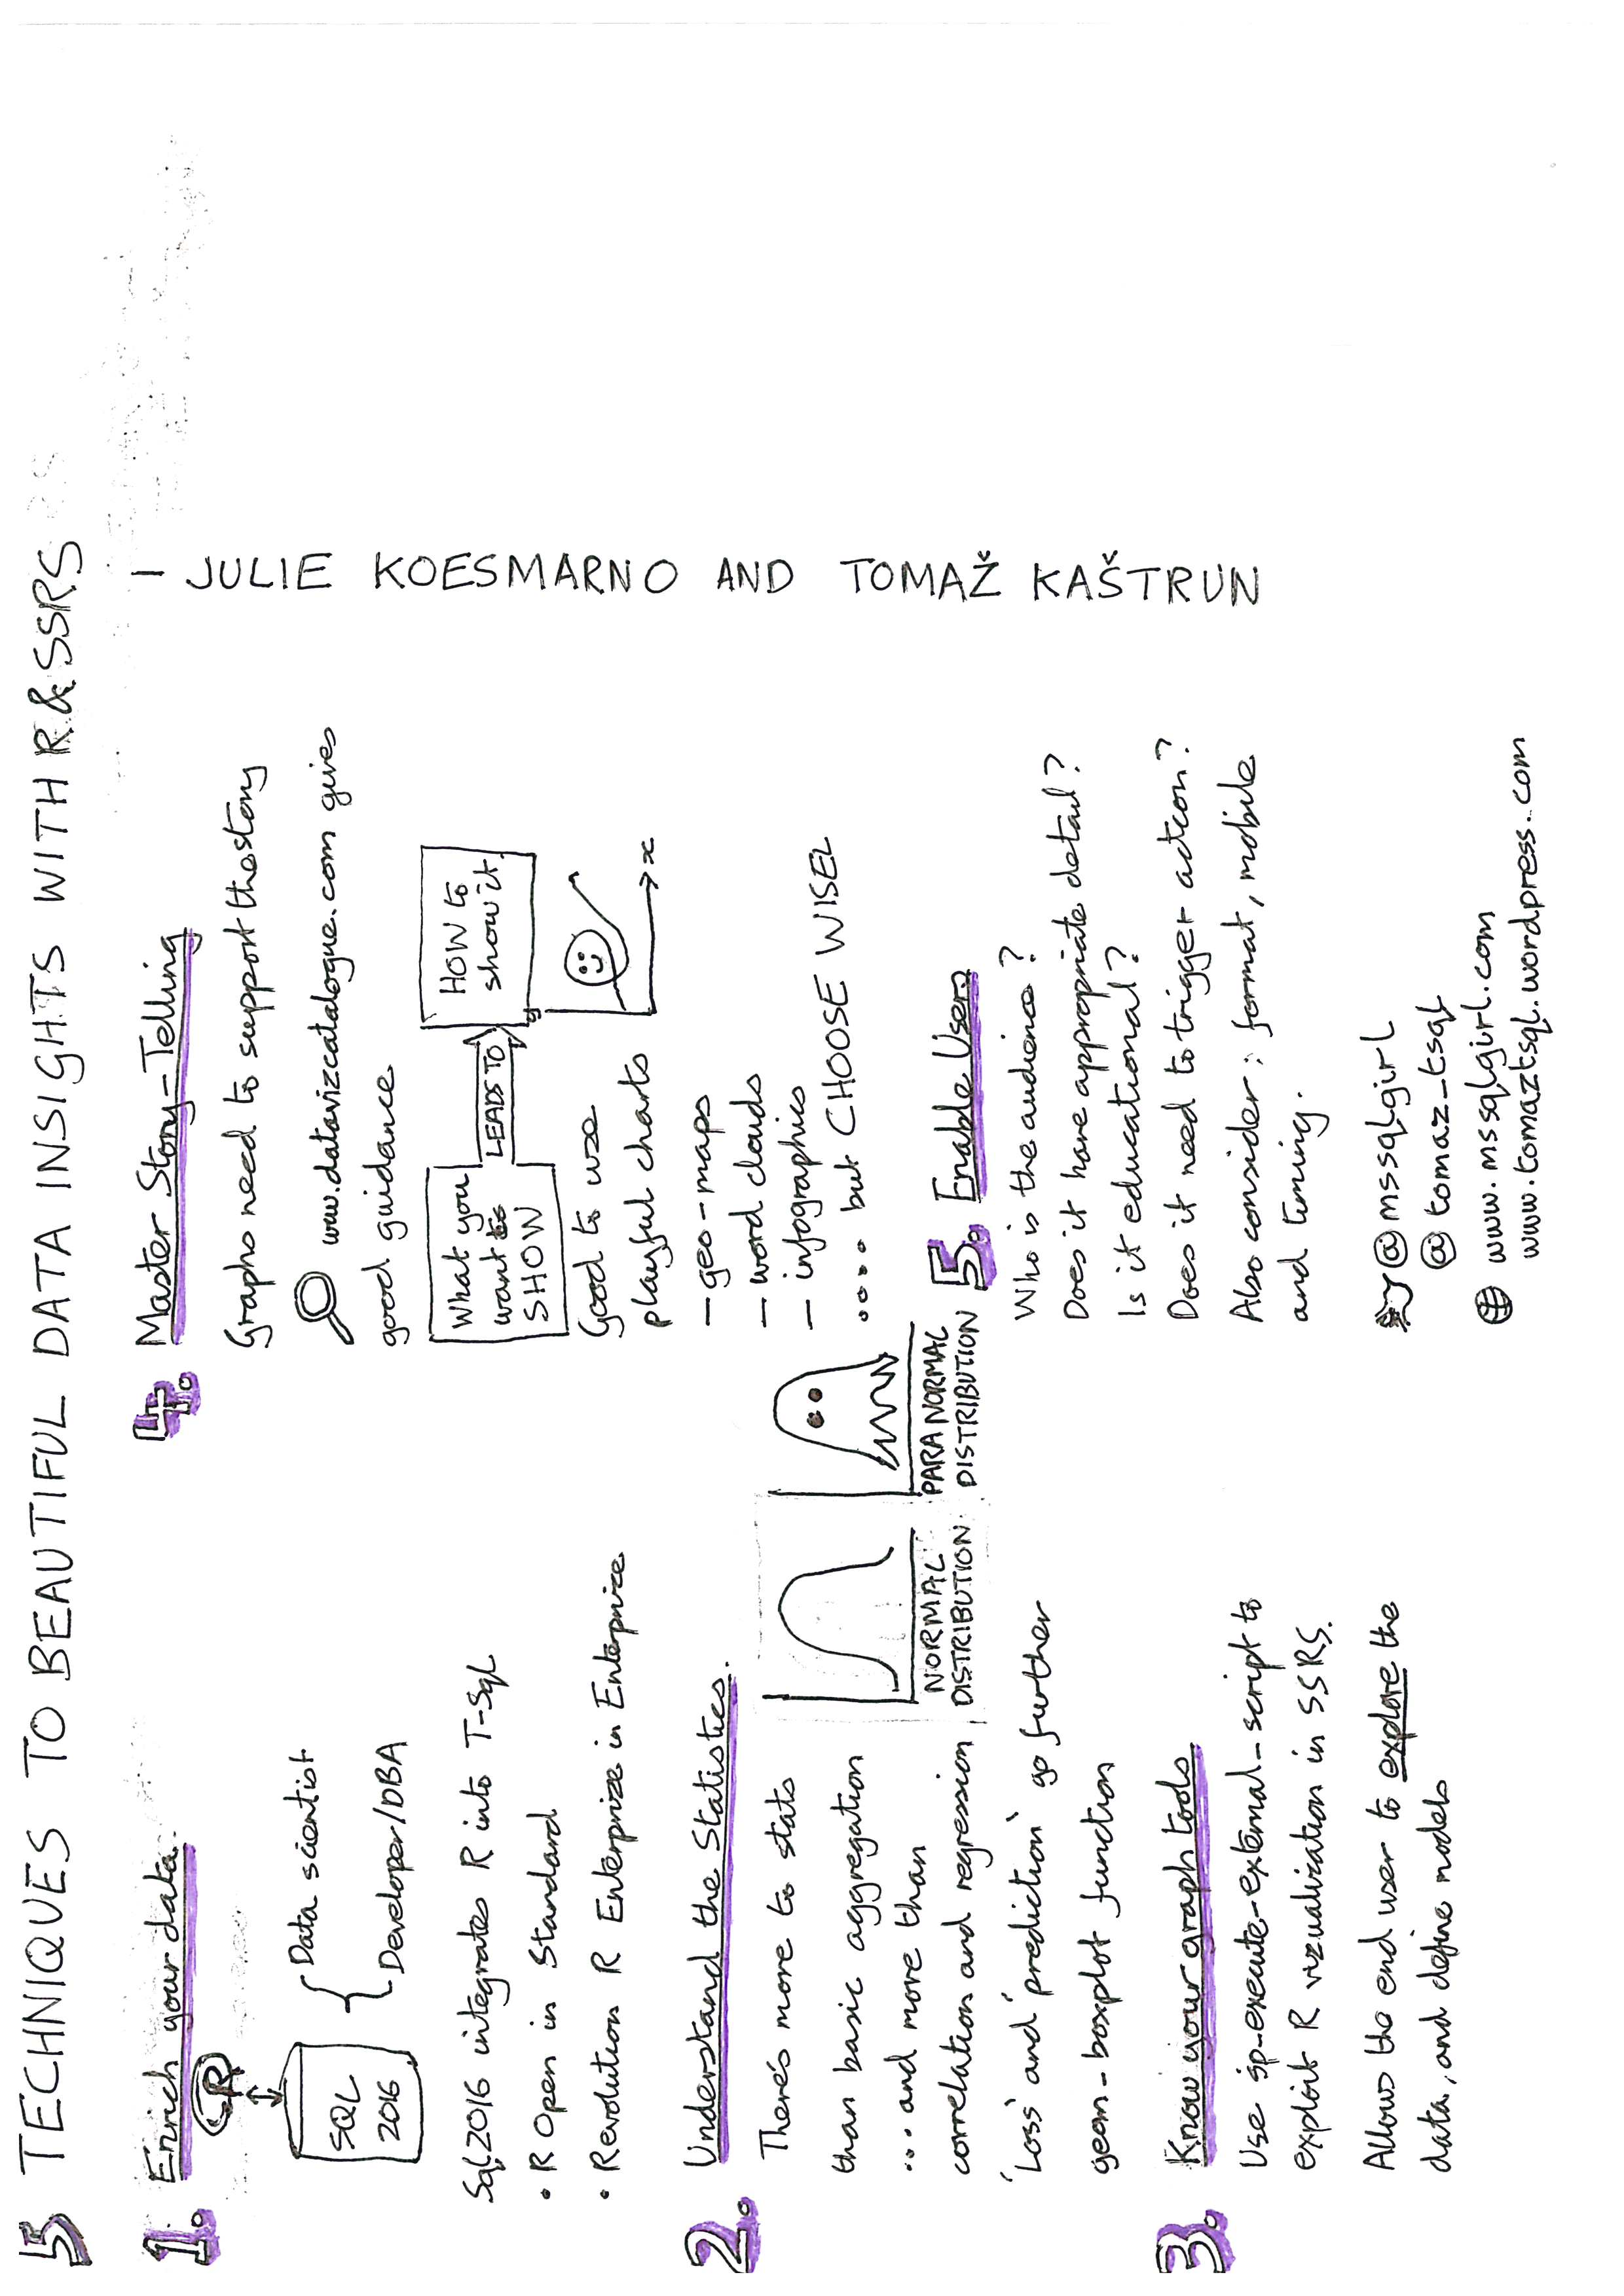 5 TECHNIQUES TO BEAUTIFUL DATA INSIGHTS WITH R & SSRS
— JULIE KOESMARNO AND TOMAŽ KAŠTRUN
1. Enrich your data.
R
SQL
2016
Data scientist
Developer/DBA
Sql2016 integrates R into T-Sql
• R Open in Standard
• Revolution R Enterprize in Enterprize
2. Understand the Statistics.
There's more to stats
than basic aggregation
... and more than
correlation and regression
'Loss' and 'prediction' go further
geom_boxplot function
NORMAL
DISTRIBUTION
PARANORMAL
DISTRIBUTION
3. Know your graph tools
Use sp_execute_external_script to
exploit R vizualization in SSRS.
Allows the end user to explore the
data, and define models
4. Master Story-Telling
Graphs need to support the story
www.datavizcatalogue.com gives
good guidance
What you
want to
SHOW
LEADS TO
HOW to
show it.
Good to use
playful charts
y
x
— geo-maps
— word clouds
— infographics
.... but CHOOSE WISEL
5. Enable Users
Who is the audience?
Does it have appropriate detail?
Is it educational?
Does it need to trigger action?
Also consider: format, mobile
and timing.
@mssqlgirl
@tomaz_tsql
www.mssqlgirl.com
www.tomaztsql.wordpress.com